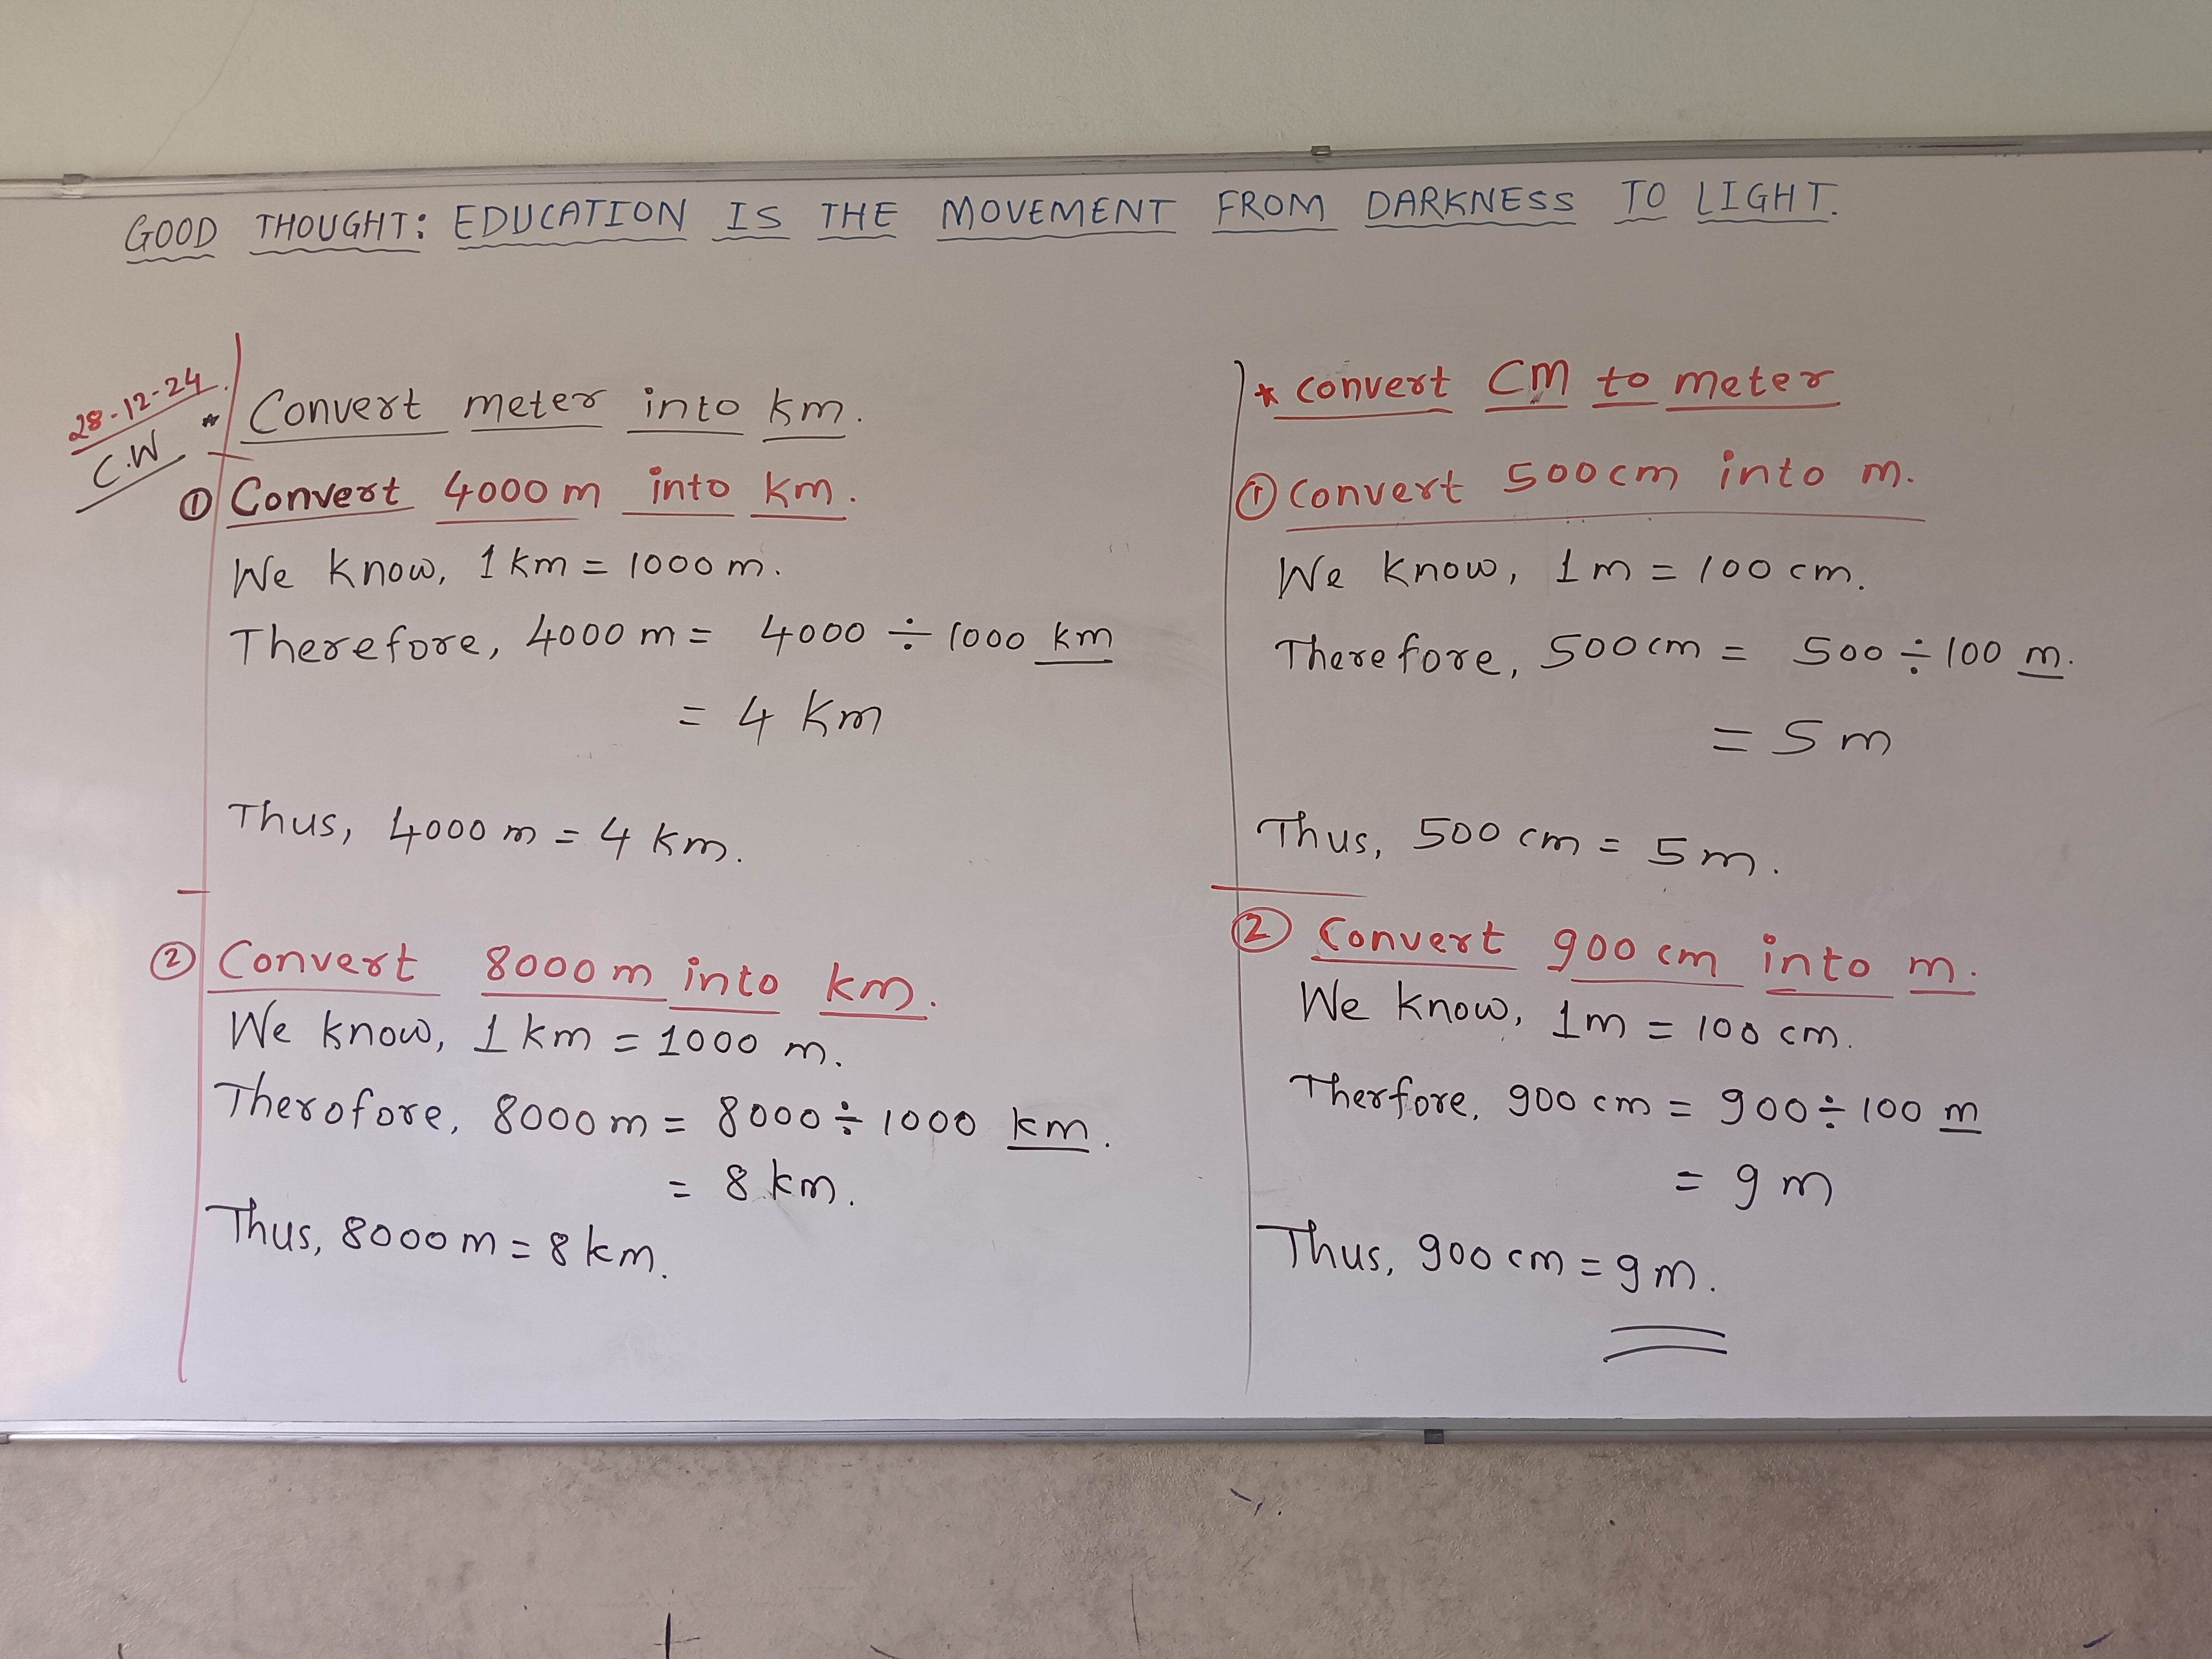 GOOD THOUGHT: EDUCATION IS THE MOVEMENT FROM DARKNESS TO LIGHT.
28-12-24.
C.W
* Convert meter into km.
① Convert 4000 m into km.
We know, 1 km = 1000 m.
Therefore, 4000 m = 4000 ÷ 1000 km
= 4 km
Thus, 4000 m = 4 km.
② Convert 8000 m into km.
We know, 1 km = 1000 m.
Therofore, 8000 m = 8000 ÷ 1000 km.
= 8 km.
Thus, 8000 m = 8 km.
* convert CM to meter
① convert 500 cm into m.
We know, 1 m = 100 cm.
Therefore, 500 cm = 500 ÷ 100 m.
= 5 m
Thus, 500 cm = 5 m.
② Convert 900 cm into m.
We know, 1 m = 100 cm.
Therfore, 900 cm = 900 ÷ 100 m
= 9 m
Thus, 900 cm = 9 m.